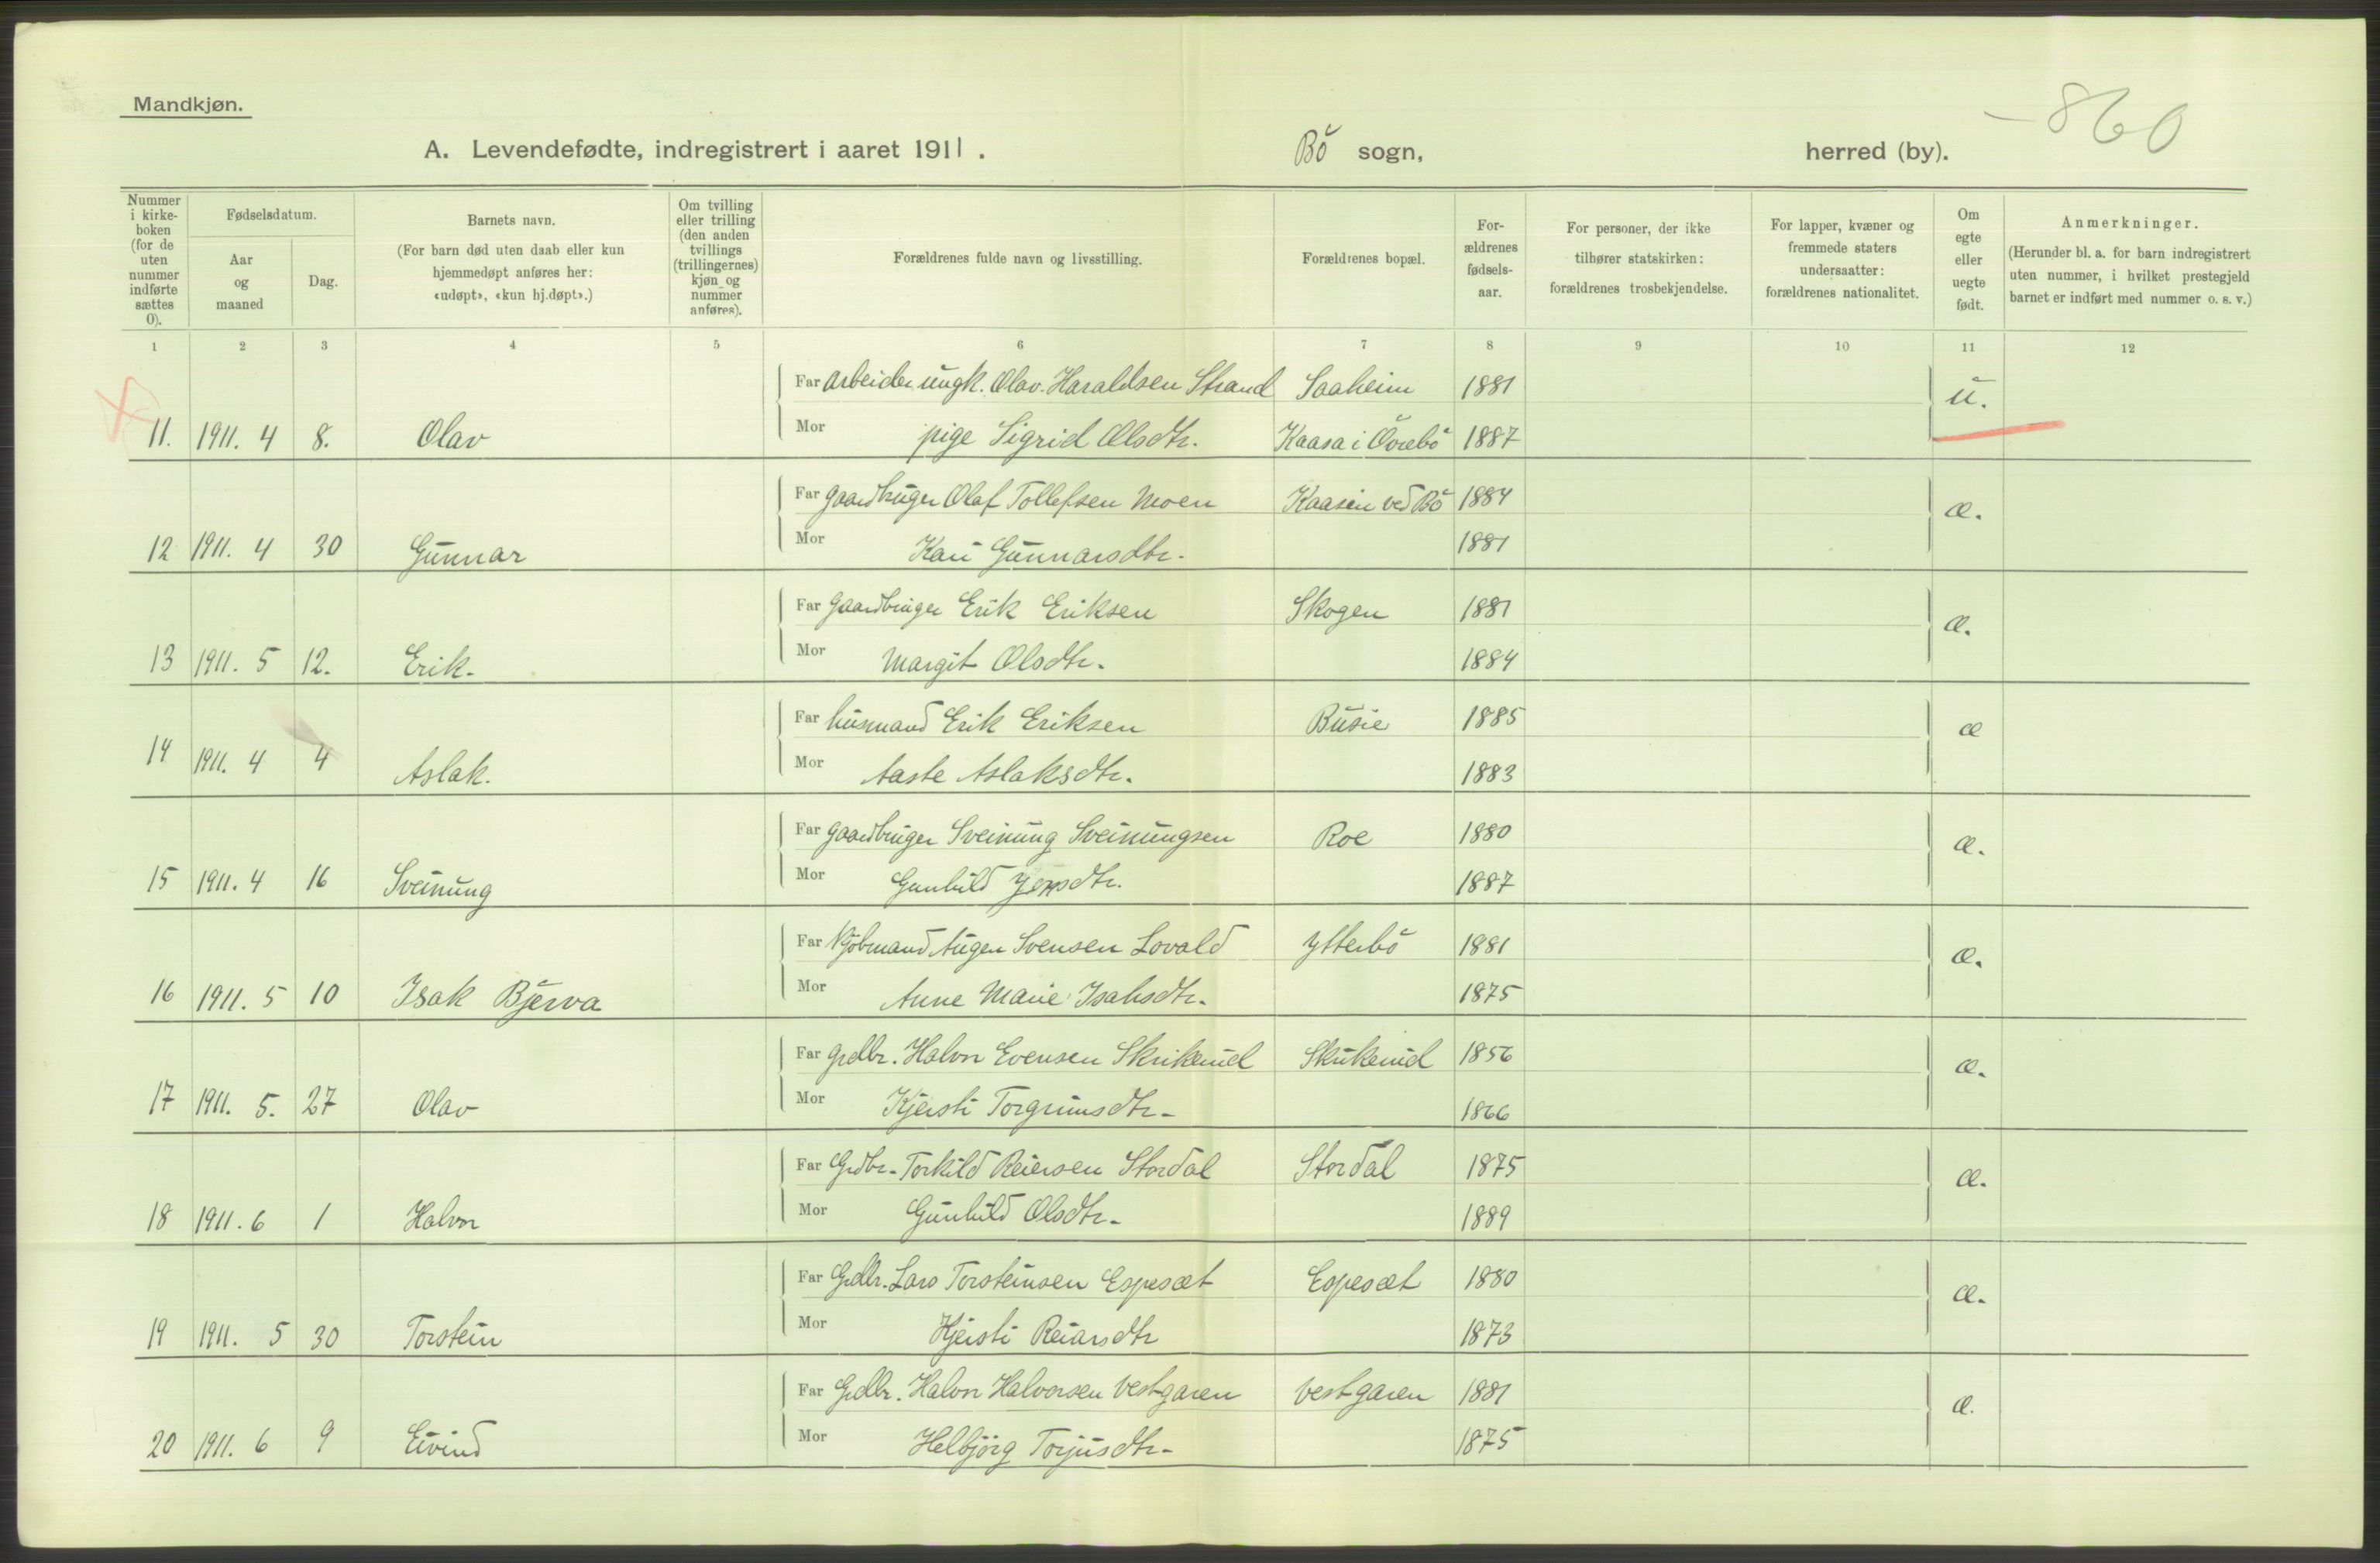 Mandkjøn.
-860
A. Levendefødte, indregistrert i aaret 1911. Bö sogn, herred (by).
Nummer i kirke-boken (for de uten nummer indførte sættes 0).
Fødselsdatum.
Aar og maaned
Dag.
Barnets navn.
(For barn død uten daab eller kun hjemmedøpt anføres her: «udøpt», «kun hj.døpt».)
Om tvilling eller trilling (den anden tvillings (trillingernes) kjøn og nummer anføres).
Forældrenes fulde navn og livsstilling.
Forældrenes bopæl.
For-ældrenes fødsels-aar.
For personer, der ikke tilhører statskirken: forældrenes trosbekjendelse.
For lapper, kvæner og fremmede staters undersaatter: forældrenes nationalitet.
Om egte eller uegte født.
Anmerkninger.
(Herunder bl. a. for barn indregistrert uten nummer, i hvilket prestegjeld barnet er indført med nummer o. s. v.)
1 2 3 4 5 6 7 8 9 10 11 12
Far arbeider ungk. Olav Haraldsen Strand Saaheim 1881 u.
11. 1911. 4 8. Olav Mor pige Sigrid Olsdtr. Kaasa i Övrebö 1887
Far gaardbruger Olaf Tollefsen Moen Kaasin ved Bö 1884 æ.
12 1911. 4 30 Gunnar Mor Kari Gunnarsdtr. 1881
Far gaardbruger Erik Eriksen Skogen 1881 æ.
13 1911. 5 12. Erik. Mor Margit Olsdtr. 1884
Far husmand Erik Eriksen Busie 1885 æ
14 1911. 4 4 Aslak. Mor Aaste Aslaksdtr. 1883
Far gaardbruger Sveinung Sveinungsen Roe 1880 æ.
15 1911. 4 16 Sveinung Mor Gunhild 1887
Far Kjöbmand Augen Svensen Lovald Ytterbö 1881 æ.
16 1911. 5 10 Isak Bjerva Mor Anne Marie Isaksdtr. 1875
Far grdbr. Halvor Evensen Skrikerud Skrikerud 1856 æ.
17 1911. 5. 27 Olav Mor Kjersti Torgrimsdtr. 1866
Far Grdbr. Torkild Reiersen Stordal Stordal 1875 æ.
18 1911. 6 1 Halvor Mor Gunhild Olsdtr. 1889
Far Grdbr. Lars Torsteinsen Espesæt Espesæt 1880 æ.
19 1911. 5 30 Torstein Mor Kjersti Reiarsdtr 1873
Far Grdbr. Halvor Halvorsen Vestgaren Vestgaren 1881 æ.
20 1911. 6 9 Eivind Mor Helbjörg Torjusdtr. 1875